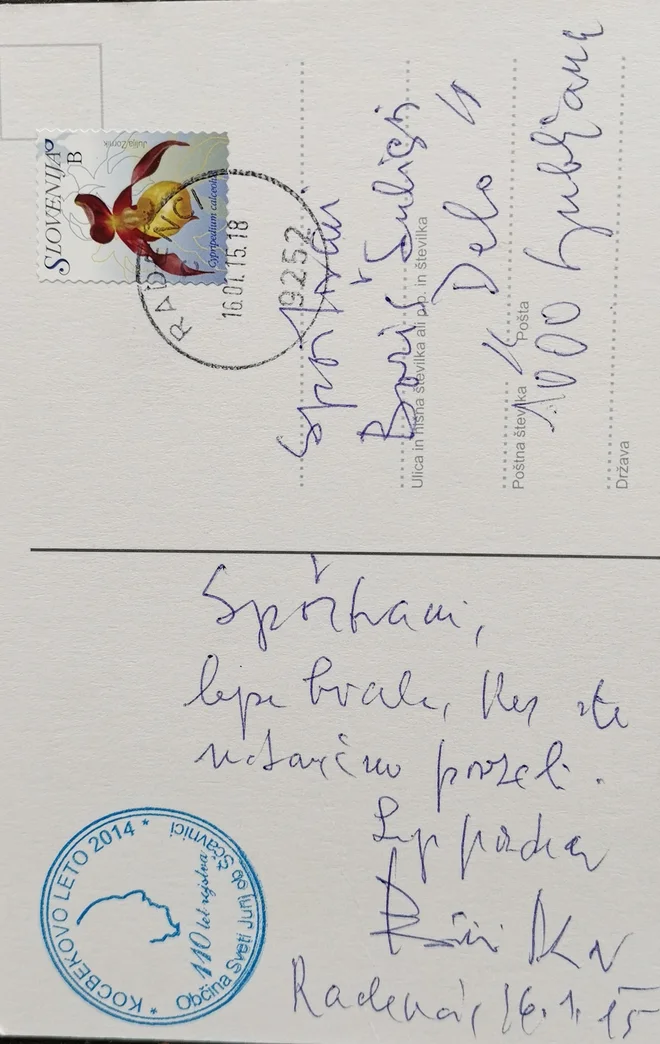 SLOVENIJA
B
Julija Zornik
Cypripedium calceolus
RADENCI
16.01.15.18
9252
Špoštovani
Boris
"Delo"
1000 Ljubljana
Ulica in hišna številka ali p.p. in številka
Poštna številka Pošta
Država
Spoštovani,
lepa hvala, ker ste
Lep pozdrav
Radenci, 16.1.15
* KOCBEKOVO LETO 2014 *
110 let rojstva
Občina Sveti Jurij ob Ščavnici